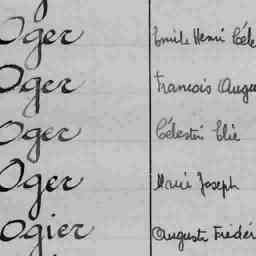 Oger Emile Henri Céle
Oger François Augu
Oger Célestin Elie
Oger Marie Joseph
Ogier Auguste Frédér